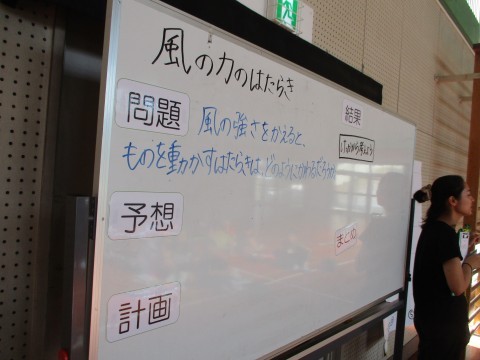 風の力のはたらき
問題
風の強さをかえると、
ものを動かすはたらきは、どのようにかわるだろうか
予想
計画
結果
けっかから考えよう
まとめ